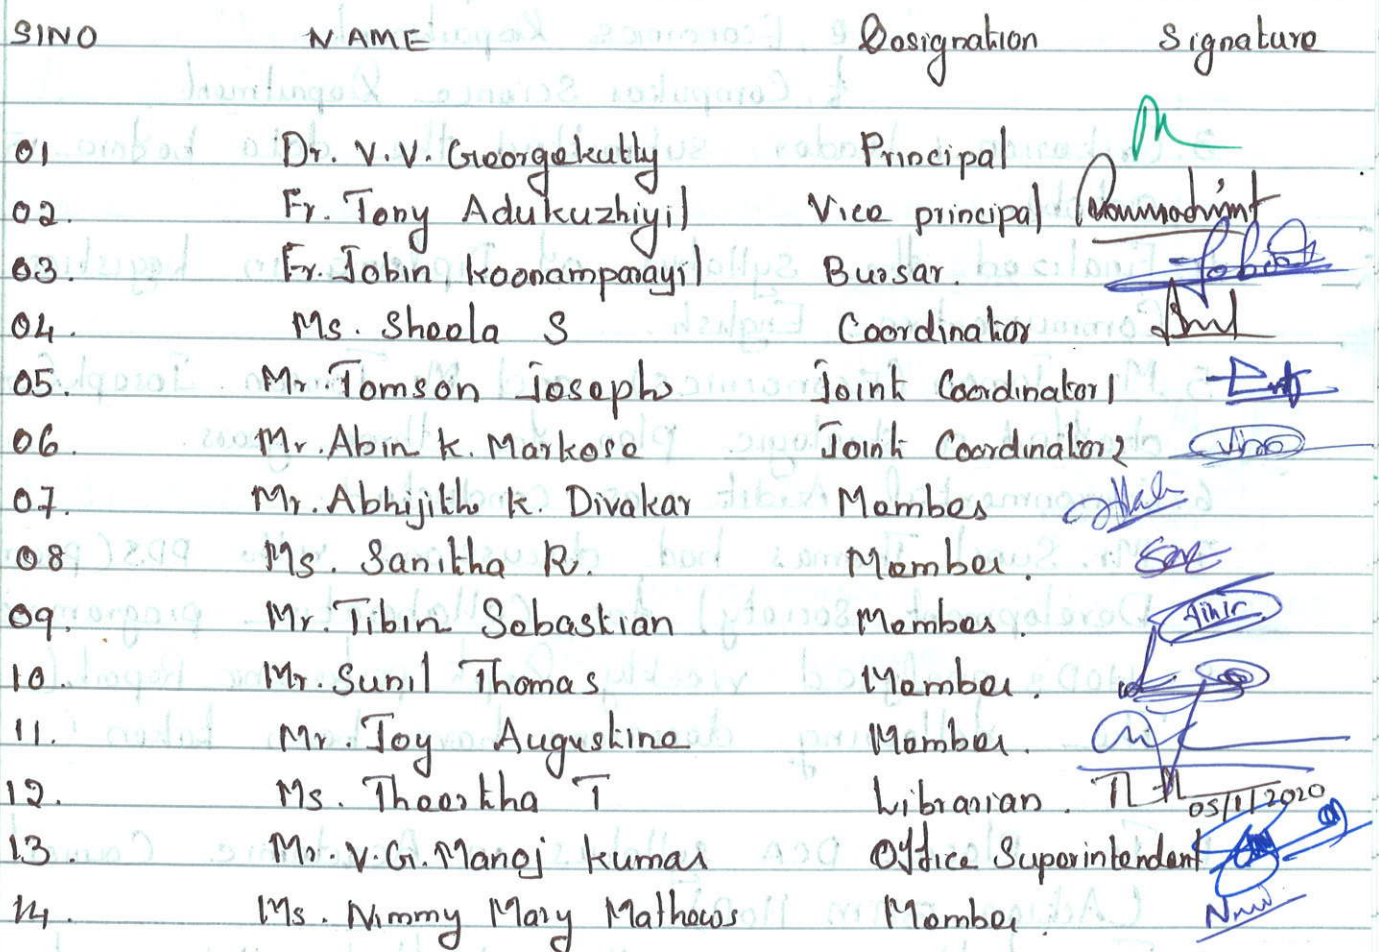 SINO NAME Designation Signature
01 Dr. V.V. Georgekutty Principal
02. Fr. Tony Adukuzhiyil Vice principal
03. Fr. Jobin Koonamparayil Bursar.
04. Ms. Sheela S Coordinator
05. Mr Tomson Joseph Joint Coordinator1
06. Mr. Abin K. Markose Joint Coordinator2
07. Mr. Abhijith K. Divakar Member
08 Ms. Sanitha R. Member.
09. Mr. Tibin Sebastian Member.
10. Mr. Sunil Thomas Member.
11. Mr. Joy Augustine Member.
12. Ms. Theertha T Librarian. 05/11/2020
13. Mr. V.G. Manoj Kumar Office Superintendent
14. Ms. Nimmy Mary Mathews Member.